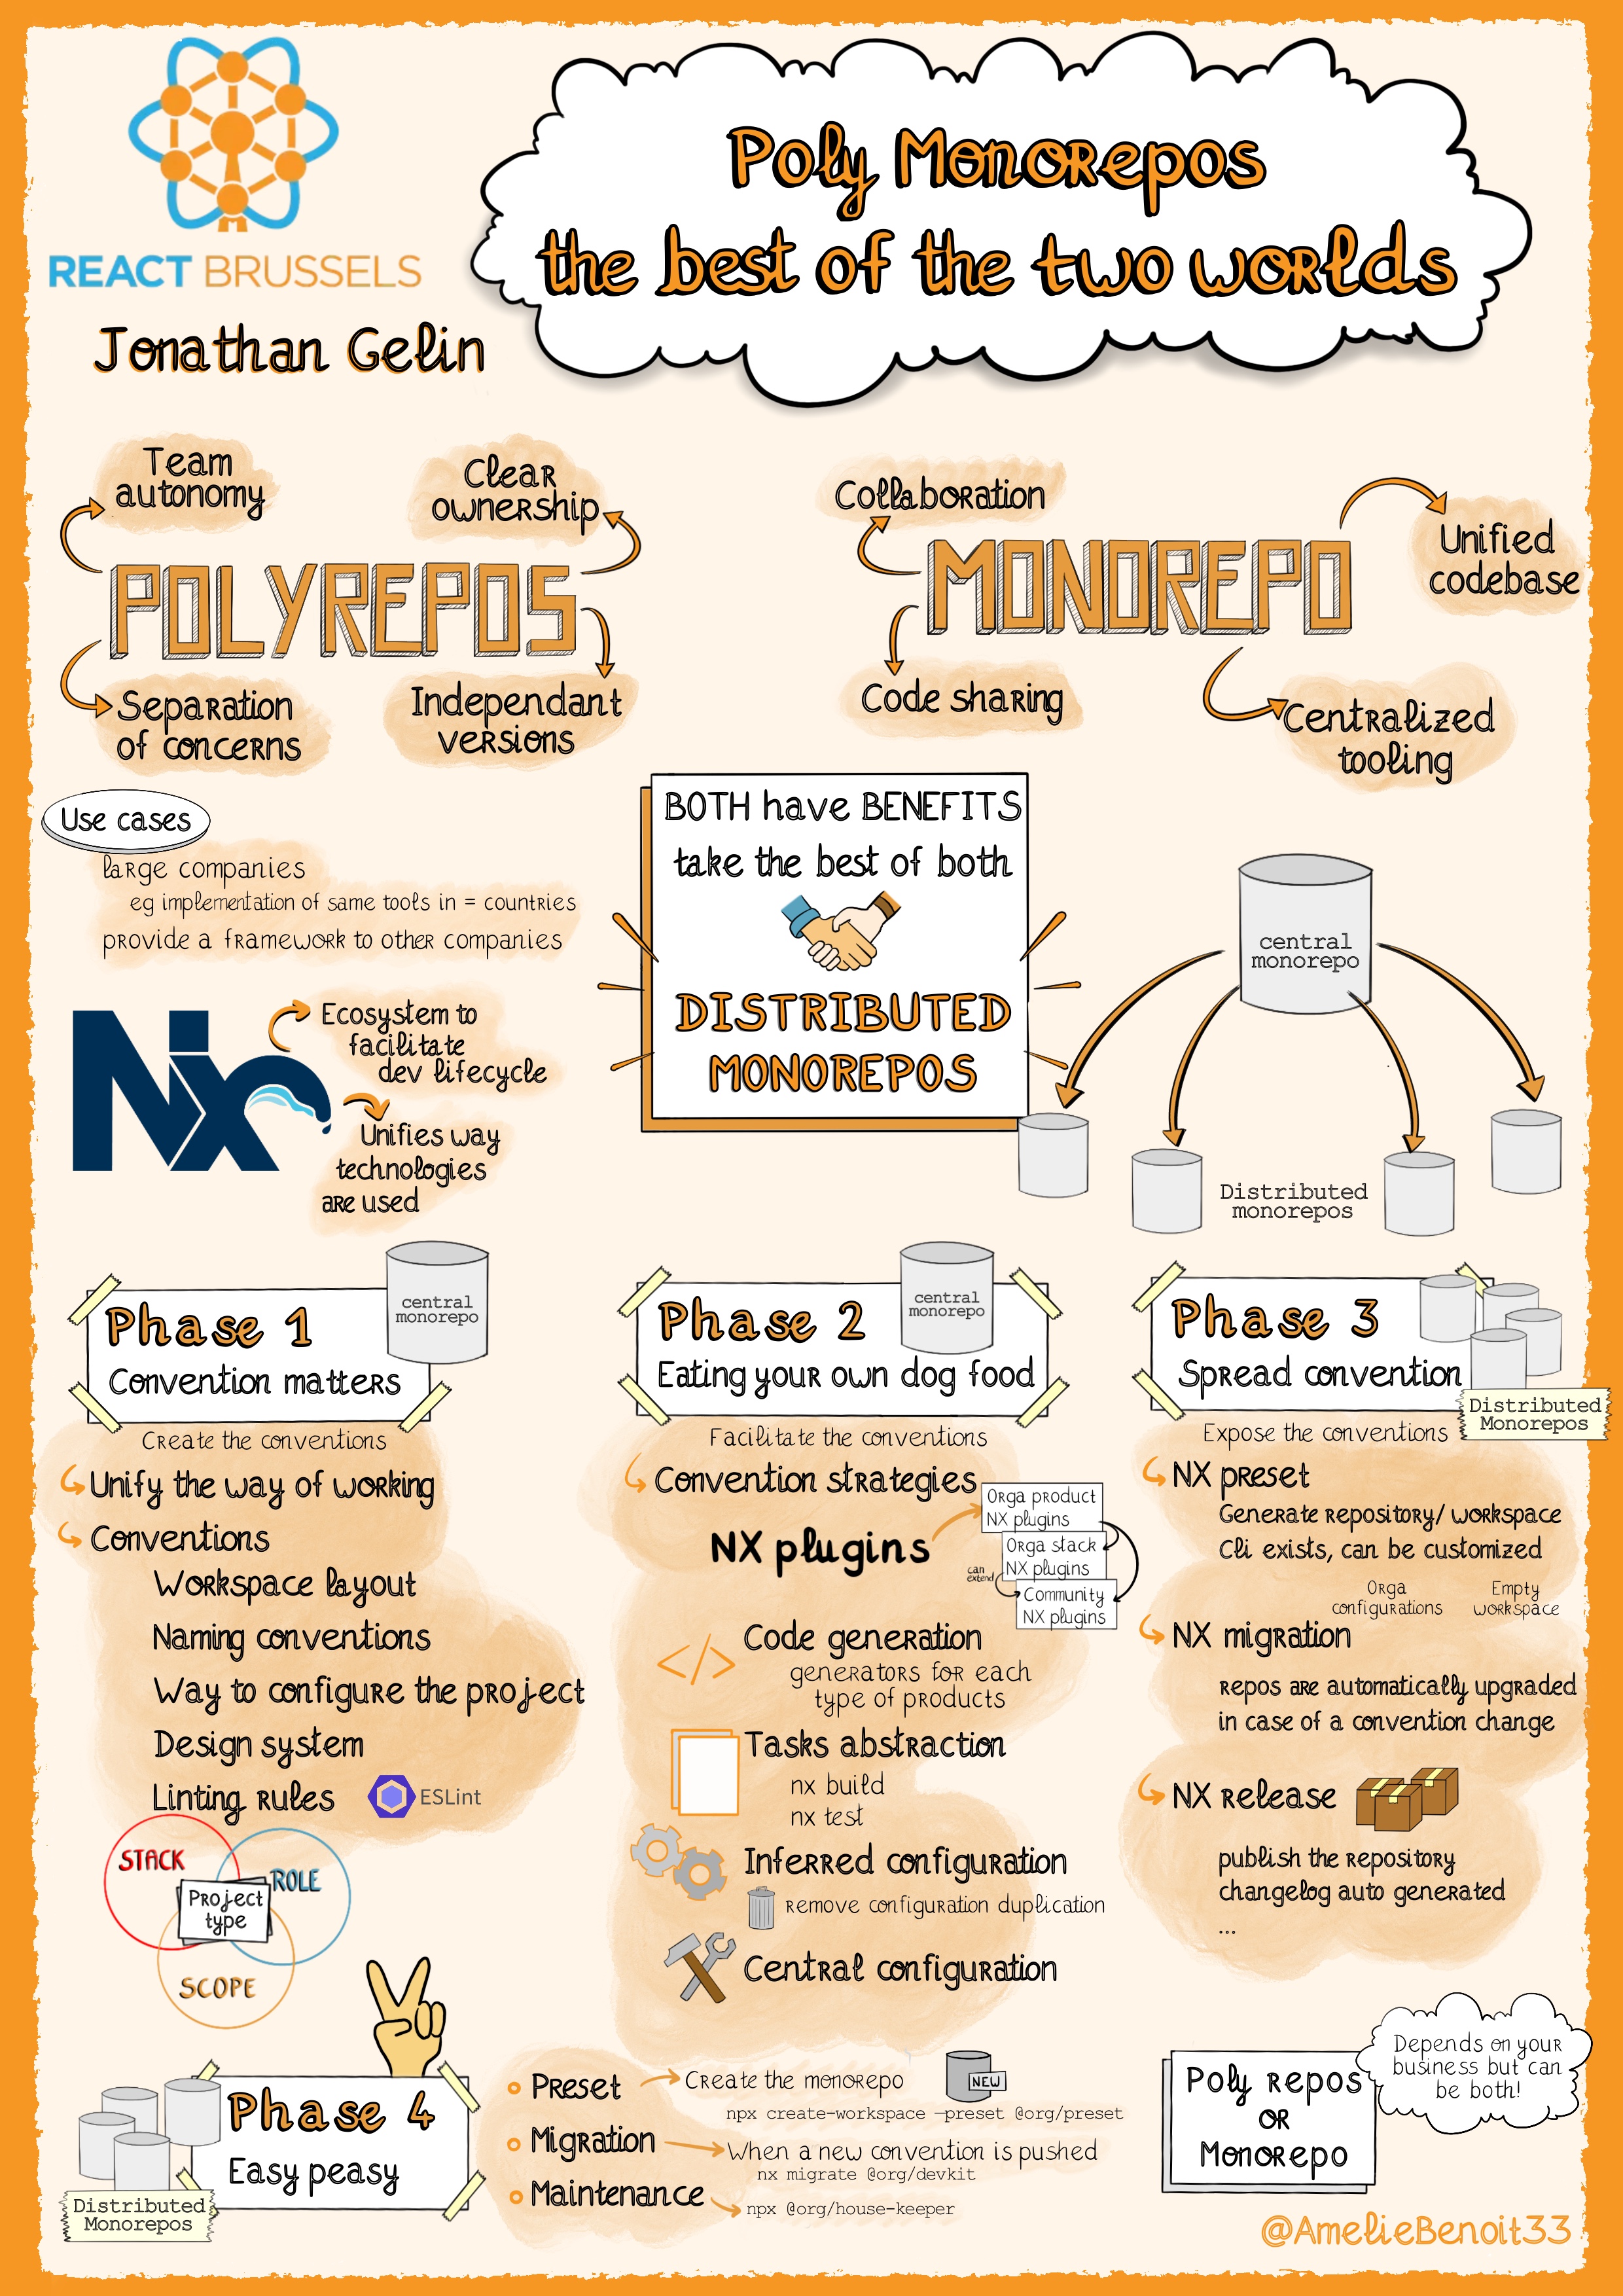 REACT BRUSSELS
Jonathan Gelin
Poly Monorepos
the best of the two worlds
Team
autonomy
Clear
ownership
POLYREPOS
Separation
of concerns
Independant
versions
Collaboration
Unified
codebase
MONOREPO
Code sharing
Centralized
tooling
Use cases
large companies
eg implementation of same tools in = countries
provide a framework to other companies
Nx
Ecosystem to
facilitate
dev lifecycle
Unifies way
technologies
are used
BOTH have BENEFITS
take the best of both
DISTRIBUTED
MONOREPOS
central
monorepo
Distributed
monorepos
Phase 1
Convention matters
central
monorepo
Create the conventions
Unify the way of working
Conventions
Workspace layout
Naming conventions
Way to configure the project
Design system
Linting rules
ESLint
STACK
ROLE
Project
type
SCOPE
Phase 2
Eating your own dog food
central
monorepo
Facilitate the conventions
Convention strategies
NX plugins
Orga product
NX plugins
Orga stack
NX plugins
can
extend
Community
NX plugins
</>
Code generation
generators for each
type of products
Tasks abstraction
nx build
nx test
Inferred configuration
remove configuration duplication
Central configuration
Phase 3
Spread convention
Distributed
Monorepos
Expose the conventions
NX preset
Generate repository/ workspace
Cli exists, can be customized
Orga
configurations
Empty
workspace
NX migration
repos are automatically upgraded
in case of a convention change
NX release
publish the repository
changelog auto generated
...
Phase 4
Easy peasy
Distributed
Monorepos
Preset
Create the monorepo
NEW
npx create-workspace —preset @org/preset
Migration
When a new convention is pushed
nx migrate @org/devkit
Maintenance
npx @org/house-keeper
Poly repos
OR
Monorepo
Depends on your
business but can
be both!
@AmelieBenoit33